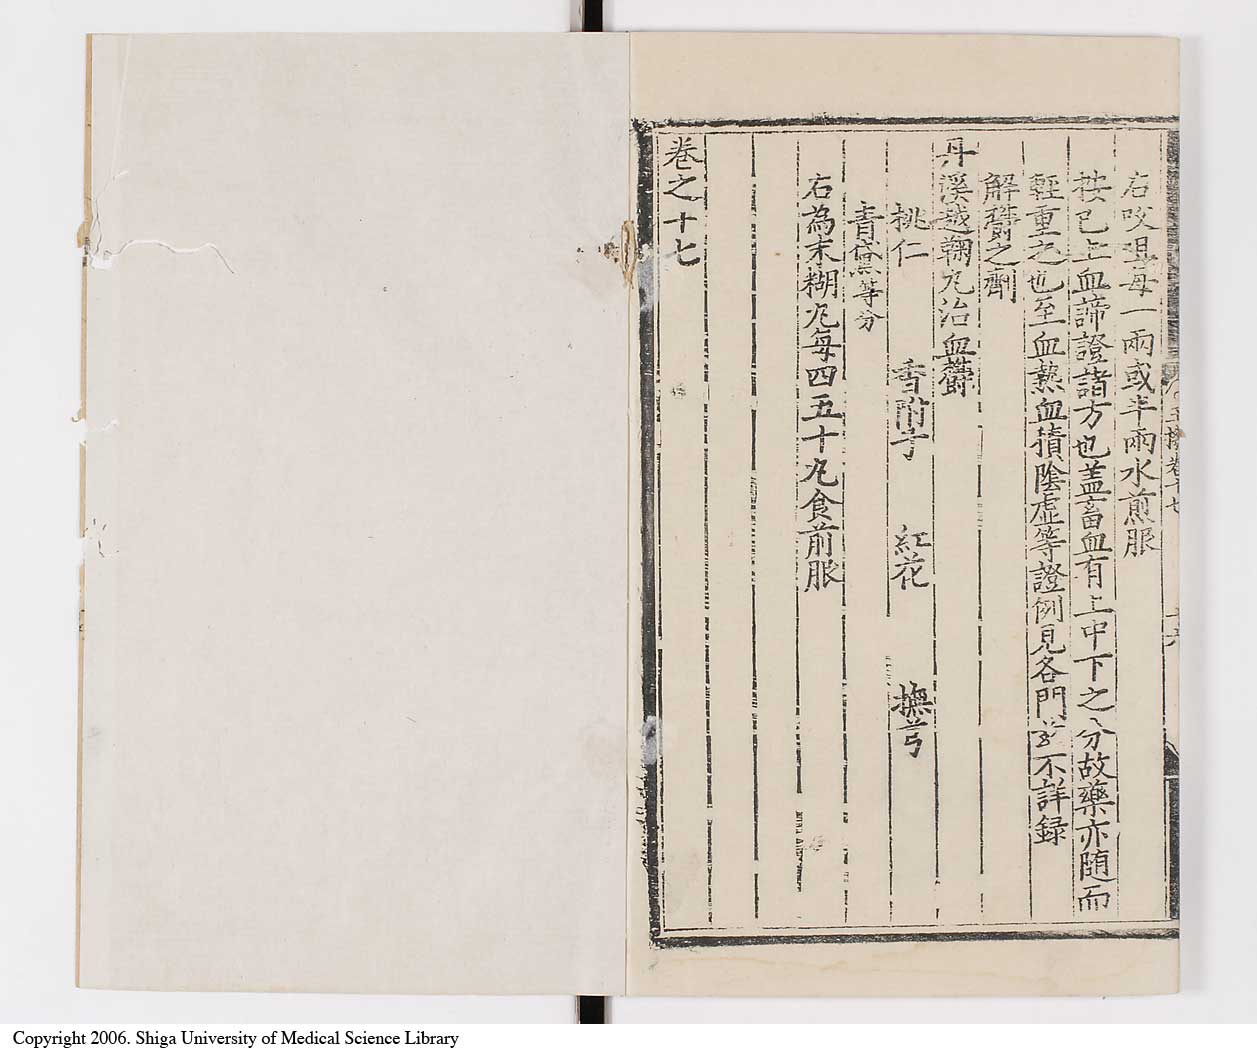 右㕮咀每一兩或半兩水煎服
按已上血諦證諸方也盖畜血有上中下之分故藥亦随而
輕重之也至血熱血積陰虛等證例見各門兹不詳録
解𩆍之劑
丹溪越鞠丸治血欝
桃仁 香附子 紅花 撫芎
青黛等分
右為末糊丸每四五十丸食前服
卷之十七
Copyright 2006. Shiga University of Medical Science Library